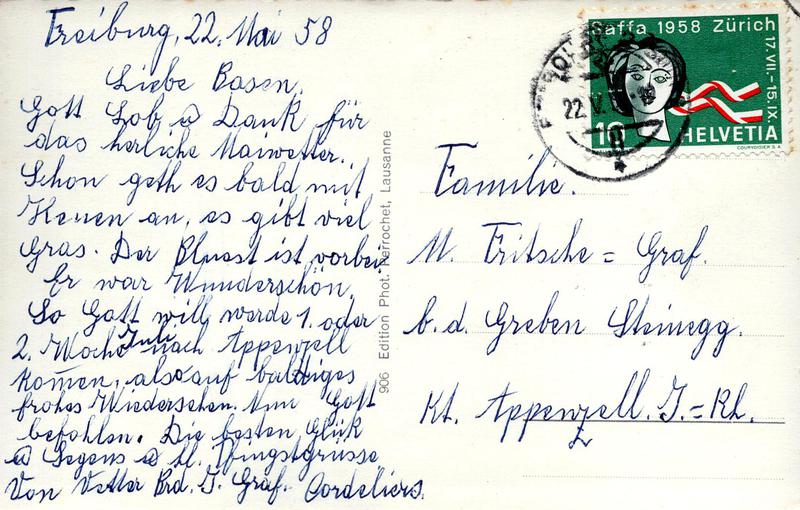 Freiburg, 22. Mai 58
Liebe Basen.
Gott Lob u Dank für
das herliche Maiwetter.
Schon geth es bald mit
Heuen an, es gibt viel
Gras. Der Bluest ist vorbei
Er war Wunderschön.
So Gott will werde 1. oder
2. Woche Juli nach Appenzell
komen, also auf baldiges
frohes Wiedersehen. Nun Gott
befohlen. Die besten Glük
u Segens u hl. Pfingstgrüsse
Von Vetter Brd. J. Graf. Cordeliers.
906 Edition Phot. Perrochet, Lausanne
Saffa 1958 Zürich
17.VII.-15.IX.
10 HELVETIA
COURVOISIER S.A.
22.V.
Familie.
M. Fritsche = Graf.
b. d. Greben Steinegg.
Kt. Appenzell. J.=Rh.